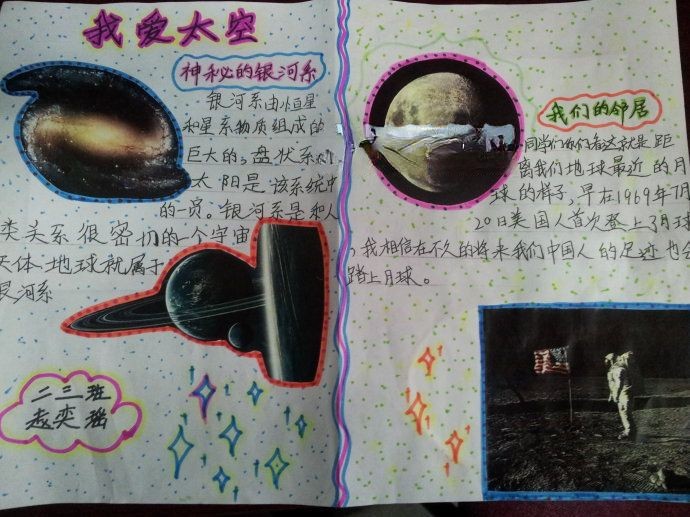 我爱太空
神秘的银河系
银河系由恒星
和星系物质组成的
巨大的,盘状系
太阳是该系统中
的一员。银河系是和人
类关系很密切的一个宇宙
天体.地球就属于
银河系
二三班
赵奕瑶
我们的邻居
同学们你们看这就是距
离我们地球最近的月
球的样子,早在1969年7月
20日美国人首次登上了月球
,我相信在不久的将来我们中国人的足迹也会
踏上月球。